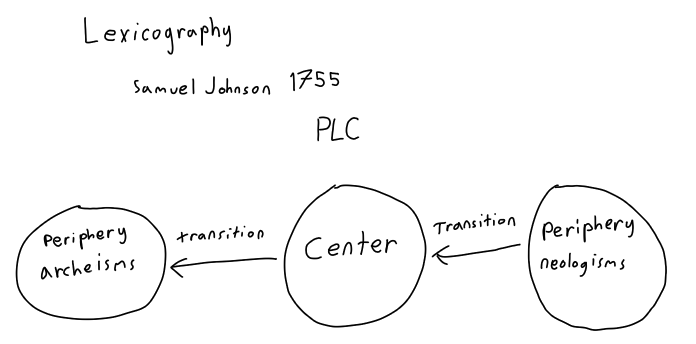 Lexicography
Samuel Johnson 1755
PLC
Periphery
archeisms
transition
Center
Transition
Periphery
neologisms